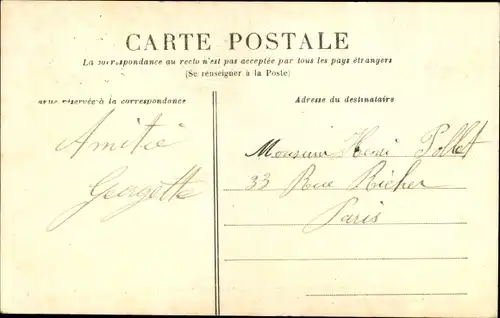 CARTE POSTALE
La correspondance au recto n'est pas acceptée par tous les pays étrangers
(Se renseigner à la Poste)
réservée à la correspondance
Adresse du destinataire
Amitié
Georgette
Monsieur Henri Pollet
33 Rue Richer
Paris